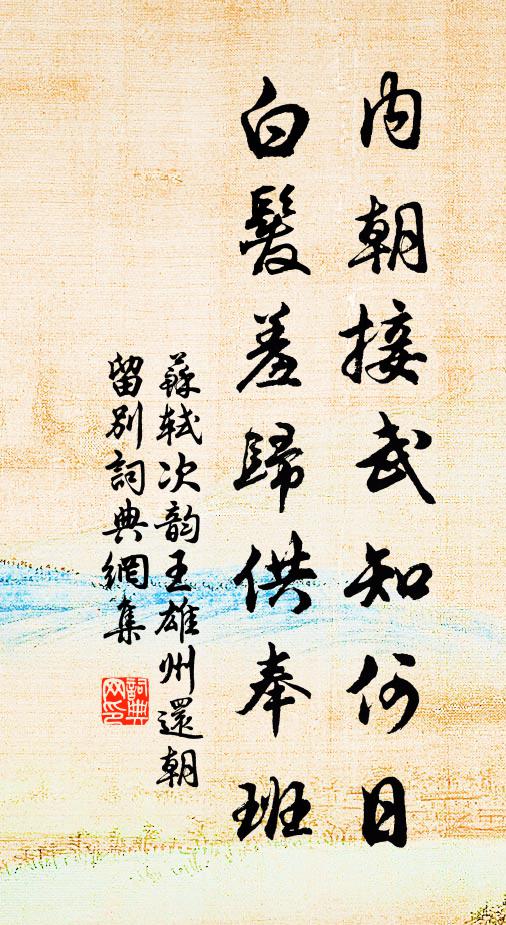 內朝接武知何日
白髮羞歸供奉班
蘇軾次韵王雄州還朝
留別詞典網集
詞典
网印